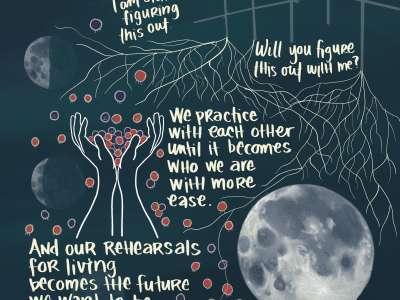 figuring
this out
Will you figure
this out with me?
We practice
with each other
until it becomes
who we are
with more
ease.
And our rehearsals
for living
becomes the future
we want to be